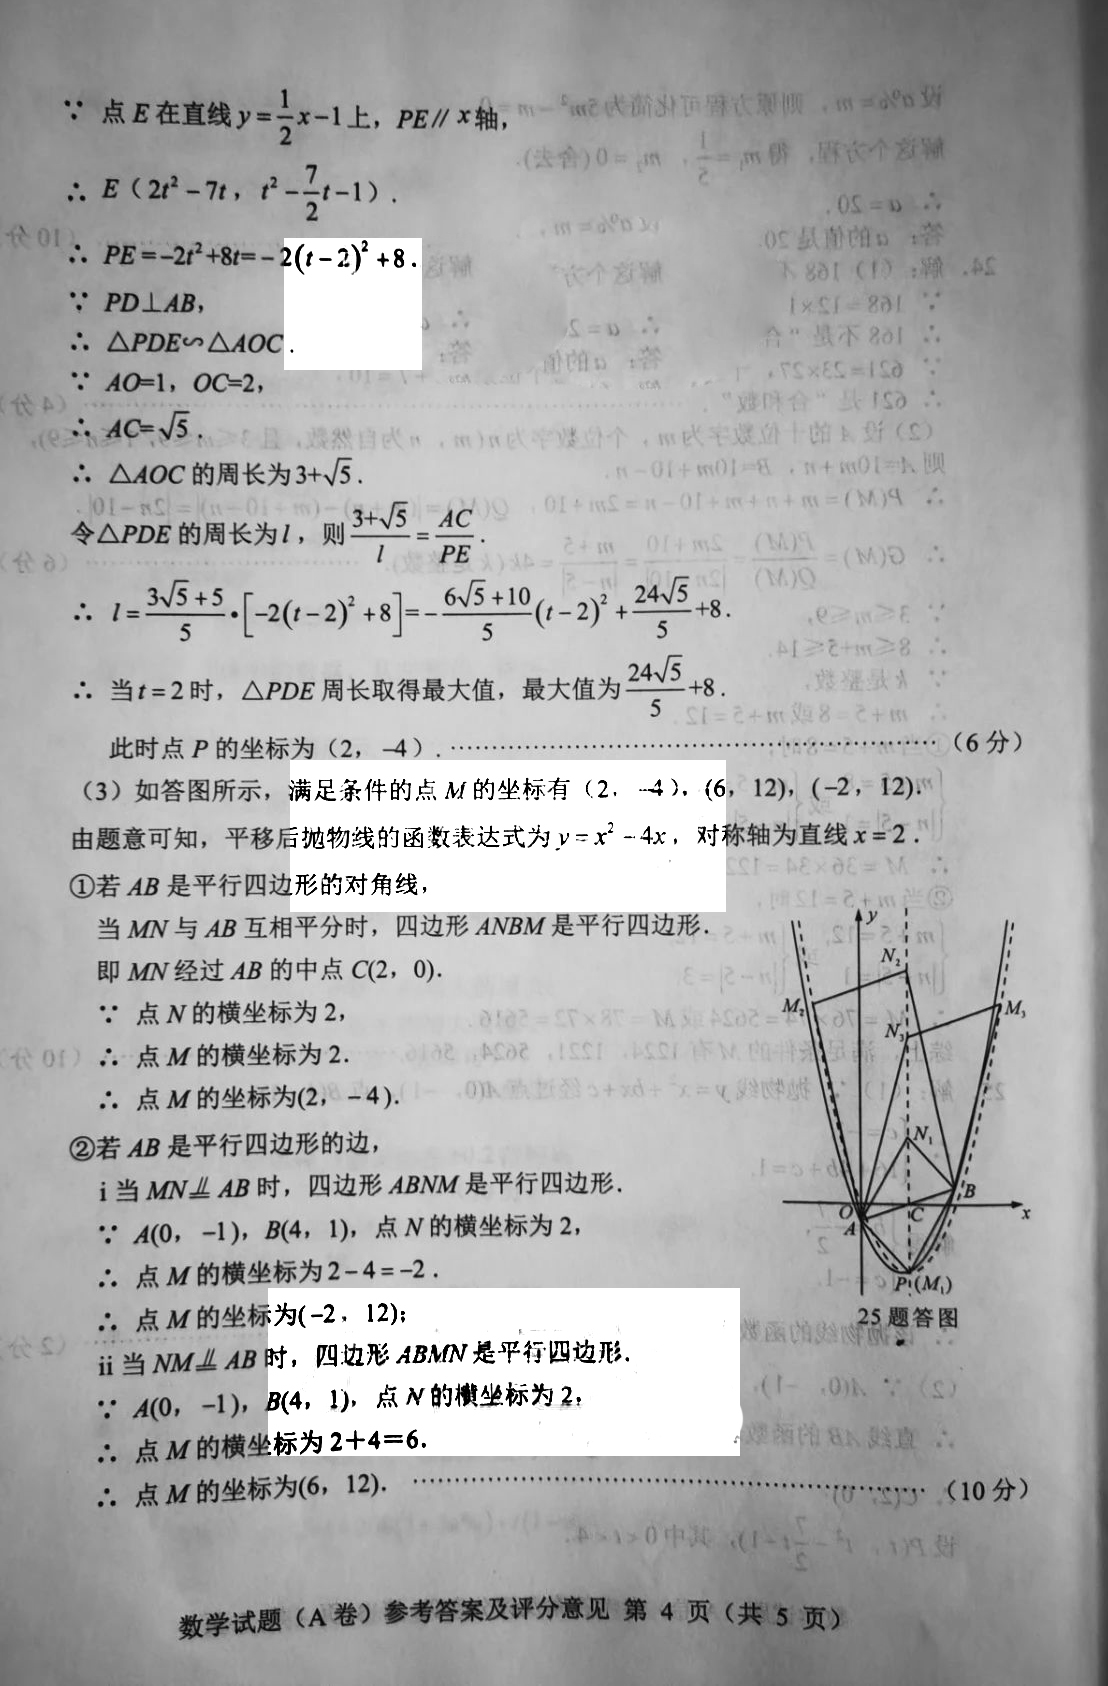 ∵ 点 E 在直线 y=1/2x−1上，PE// x轴，
∴ E（2t²−7t，t²−7/2t−1）.
∴ PE=−2t²+8t=−2(t−2)²+8.
∵ PD⊥AB，
∴ △PDE∽△AOC.
∵ AO=1，OC=2，
∴ AC=√5.
∴ △AOC 的周长为3+√5.
令△PDE 的周长为l，则(3+√5)/l=AC/PE.
∴ l=(3√5+5)/5•[−2(t−2)²+8]=−(6√5+10)/5(t−2)²+24√5/5+8.
∴ 当t=2时，△PDE 周长取得最大值，最大值为24√5/5+8.
此时点 P 的坐标为（2，−4）.……………………………………（6 分）
（3）如答图所示，满足条件的点 M 的坐标有（2，−4），(6，12)，(−2，12).
由题意可知，平移后抛物线的函数表达式为 y=x²−4x，对称轴为直线 x=2.
①若 AB 是平行四边形的对角线，
当 MN 与 AB 互相平分时，四边形 ANBM 是平行四边形.
即 MN 经过 AB 的中点 C(2，0).
∵ 点 N 的横坐标为 2，
∴ 点 M 的横坐标为 2.
∴ 点 M 的坐标为(2，−4).
②若 AB 是平行四边形的边，
i 当 MN⫫AB 时，四边形 ABNM 是平行四边形.
∵ A(0，−1)，B(4，1)，点 N 的横坐标为 2，
∴ 点 M 的横坐标为 2−4=−2.
∴ 点 M 的坐标为(−2，12)；
ii 当 NM⫫AB 时，四边形 ABMN 是平行四边形.
∵ A(0，−1)，B(4，1)，点 N 的横坐标为 2，
∴ 点 M 的横坐标为 2+4=6.
∴ 点 M 的坐标为(6，12).……………………………………（10 分）
y
N₂
M₂
M₃
N₃
N₁
B
O
C
x
A
P(M₁)
25 题答图
数学试题（A 卷）参考答案及评分意见 第 4 页（共 5 页）